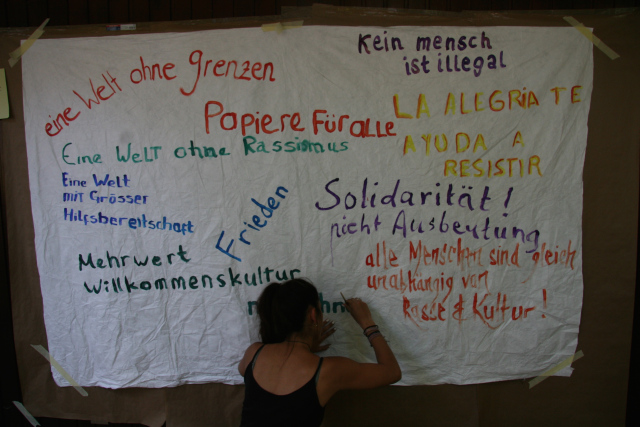 eine Welt ohne grenzen
Kein mensch
ist illegal
Papiere Für alle
LA ALEGRIA TE
AYUDA A
RESISTIR
EINE WELT ohne Rassismus
Eine Welt
mit Grösser
Hilfsbereitschaft
Frieden
Solidarität!
nicht Ausbeutung
Mehrwert
Willkommenskultur
alle Menschen sind gleich
unabhängig von
Rasse & Kultur!